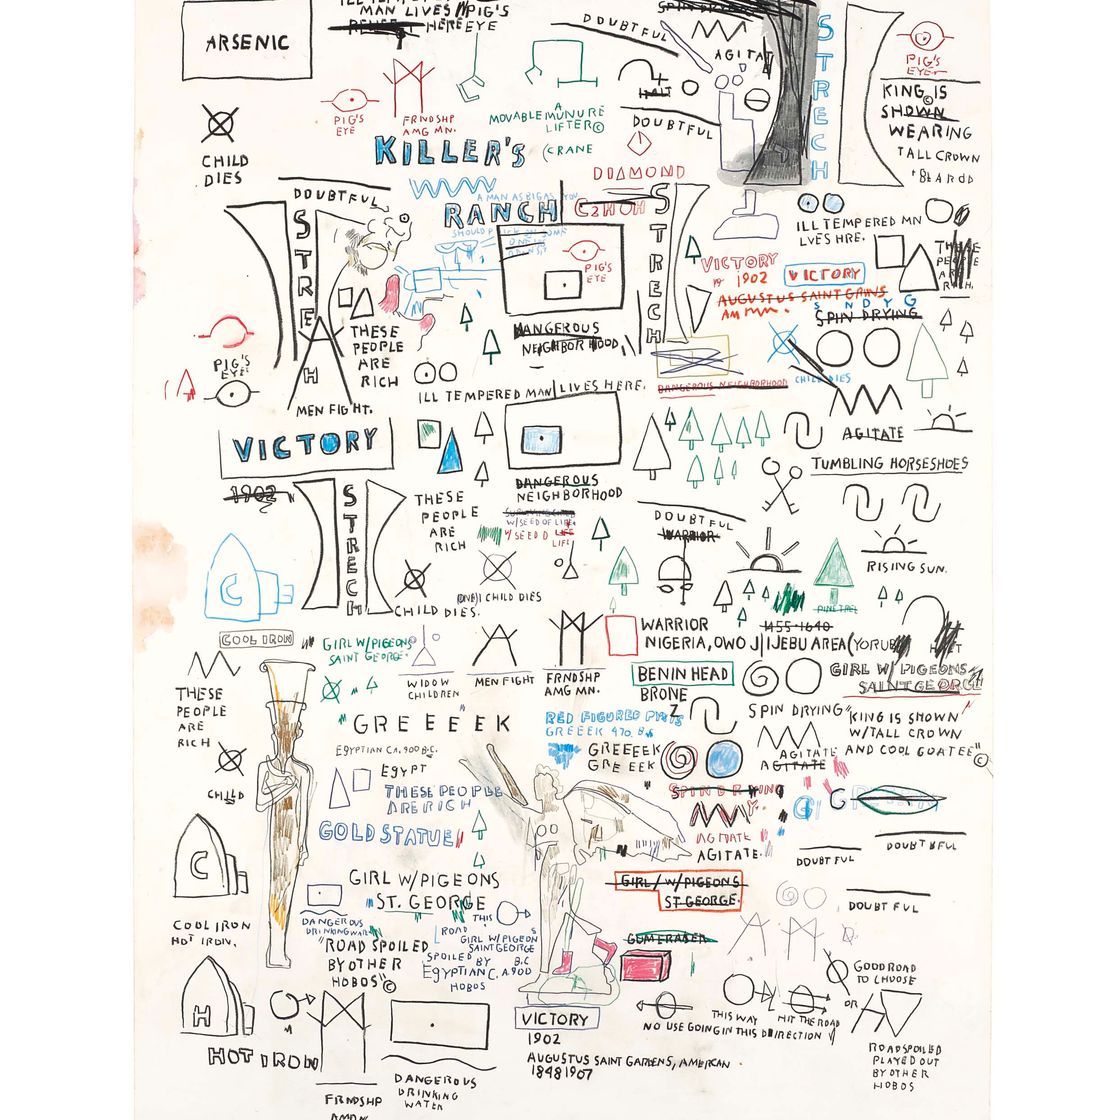 MAN LIVES
HERE
PIG'S
EYE
ARSENIC
DOUBTFUL
AGITAT
STRECH
PIG'S
EYE
KING IS
SHOWN
WEARING
TALL CROWN
BEARDD
CHILD
DIES
PIG'S
EYE
FRNDSHP
AMG MN.
A
MOVABLE MUNURE
LIFTER©
(CRANE
KILLER'S
DOUBTFUL
DIAMOND
DOUBTFUL
A MAN AS BIG AS YOU
RANCH
C2HOH
STRECH
STRECH
ILL TEMPERED MN
LVES HRE.
PIG'S
EYE
VICTORY
19 1902
VICTORY
AUGUSTUS SAINT GRINS
SPIN DRYING
THESE
PEOPLE
ARE
RICH
DANGEROUS
NEIGHBORHOOD
PIG'S
EYE
ILL TEMPERED MAN LIVES HERE.
DANGEROUS NEIGHBORHOOD
CHILD DIES
MEN FIGHT.
VICTORY
1902
AGITATE
TUMBLING HORSESHOES
DANGEROUS
NEIGHBORHOOD
STRECH
THESE
PEOPLE
ARE
RICH
W/SEED OF LIFE
W/SEED D LIFE
LIFE
DOUBTFUL
WARRIOR
RISING SUN.
C
CHILD DIES.
(ONE) CHILD DIES
PINE TREE
COOL IRON
GIRL W/PIGEONS
SAINT GEORGE.
1455-1640
WARRIOR
NIGERIA, OWO J|IJEBU AREA (YORUB
WIDOW
CHILDREN
MEN FIGHT
FRNDSHP
AMG MN.
BENIN HEAD
BRONE
Z
GIRL W/PIGEONS
SAINT GEORGE
THESE
PEOPLE
ARE
RICH
GREEEEK
RED FIGURED
GREEEK 470. B.
SPIN DRYING
"KING IS SHOWN
W/TALL CROWN
AND COOL GOATEE"©
EGYPTIAN CA. 900 B.C.
GREEEEK
GREEEK
AGITATE
AGITATE
EGYPT
THESE PEOPLE
ARE RICH
CHILD
GOLD STATUE
SPIN DRYING
AGITATE
AGITATE.
G
C
DOUBTFUL
DOUBTFUL
GIRL W/PIGEONS
ST. GEORGE
GIRL/W/PIGEONS
ST GEORGE.
DOUBTFUL
COOL IRON
HOT IRON.
DANGEROUS
DRINKING WATER
THIS
ROAD
GIRL W/PIGEON
SAINT GEORGE
SPOILED BY
B.C
EGYPTIAN CA. 900
HOBOS
"ROAD SPOILED
BY OTHER
HOBOS"©
GUM ERASER
GOOD ROAD
TO CHOOSE
OR
H
HOT IRON
VICTORY
1902
AUGUSTUS SAINT GARDENS, AMERICAN
1848 1907
NO USE GOING IN THIS DIRECTION
THIS WAY
HIT THE ROAD
ROAD SPOILED
PLAYED OUT
BY OTHER
HOBOS
DANGEROUS
DRINKING
WATER
FRNDSHP